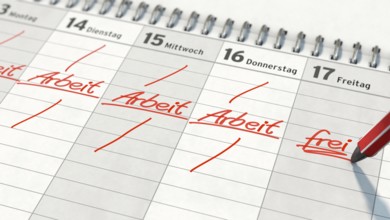 3 Montag
14 Dienstag
15 Mittwoch
16 Donnerstag
17 Freitag
Arbeit
Arbeit
Arbeit
frei